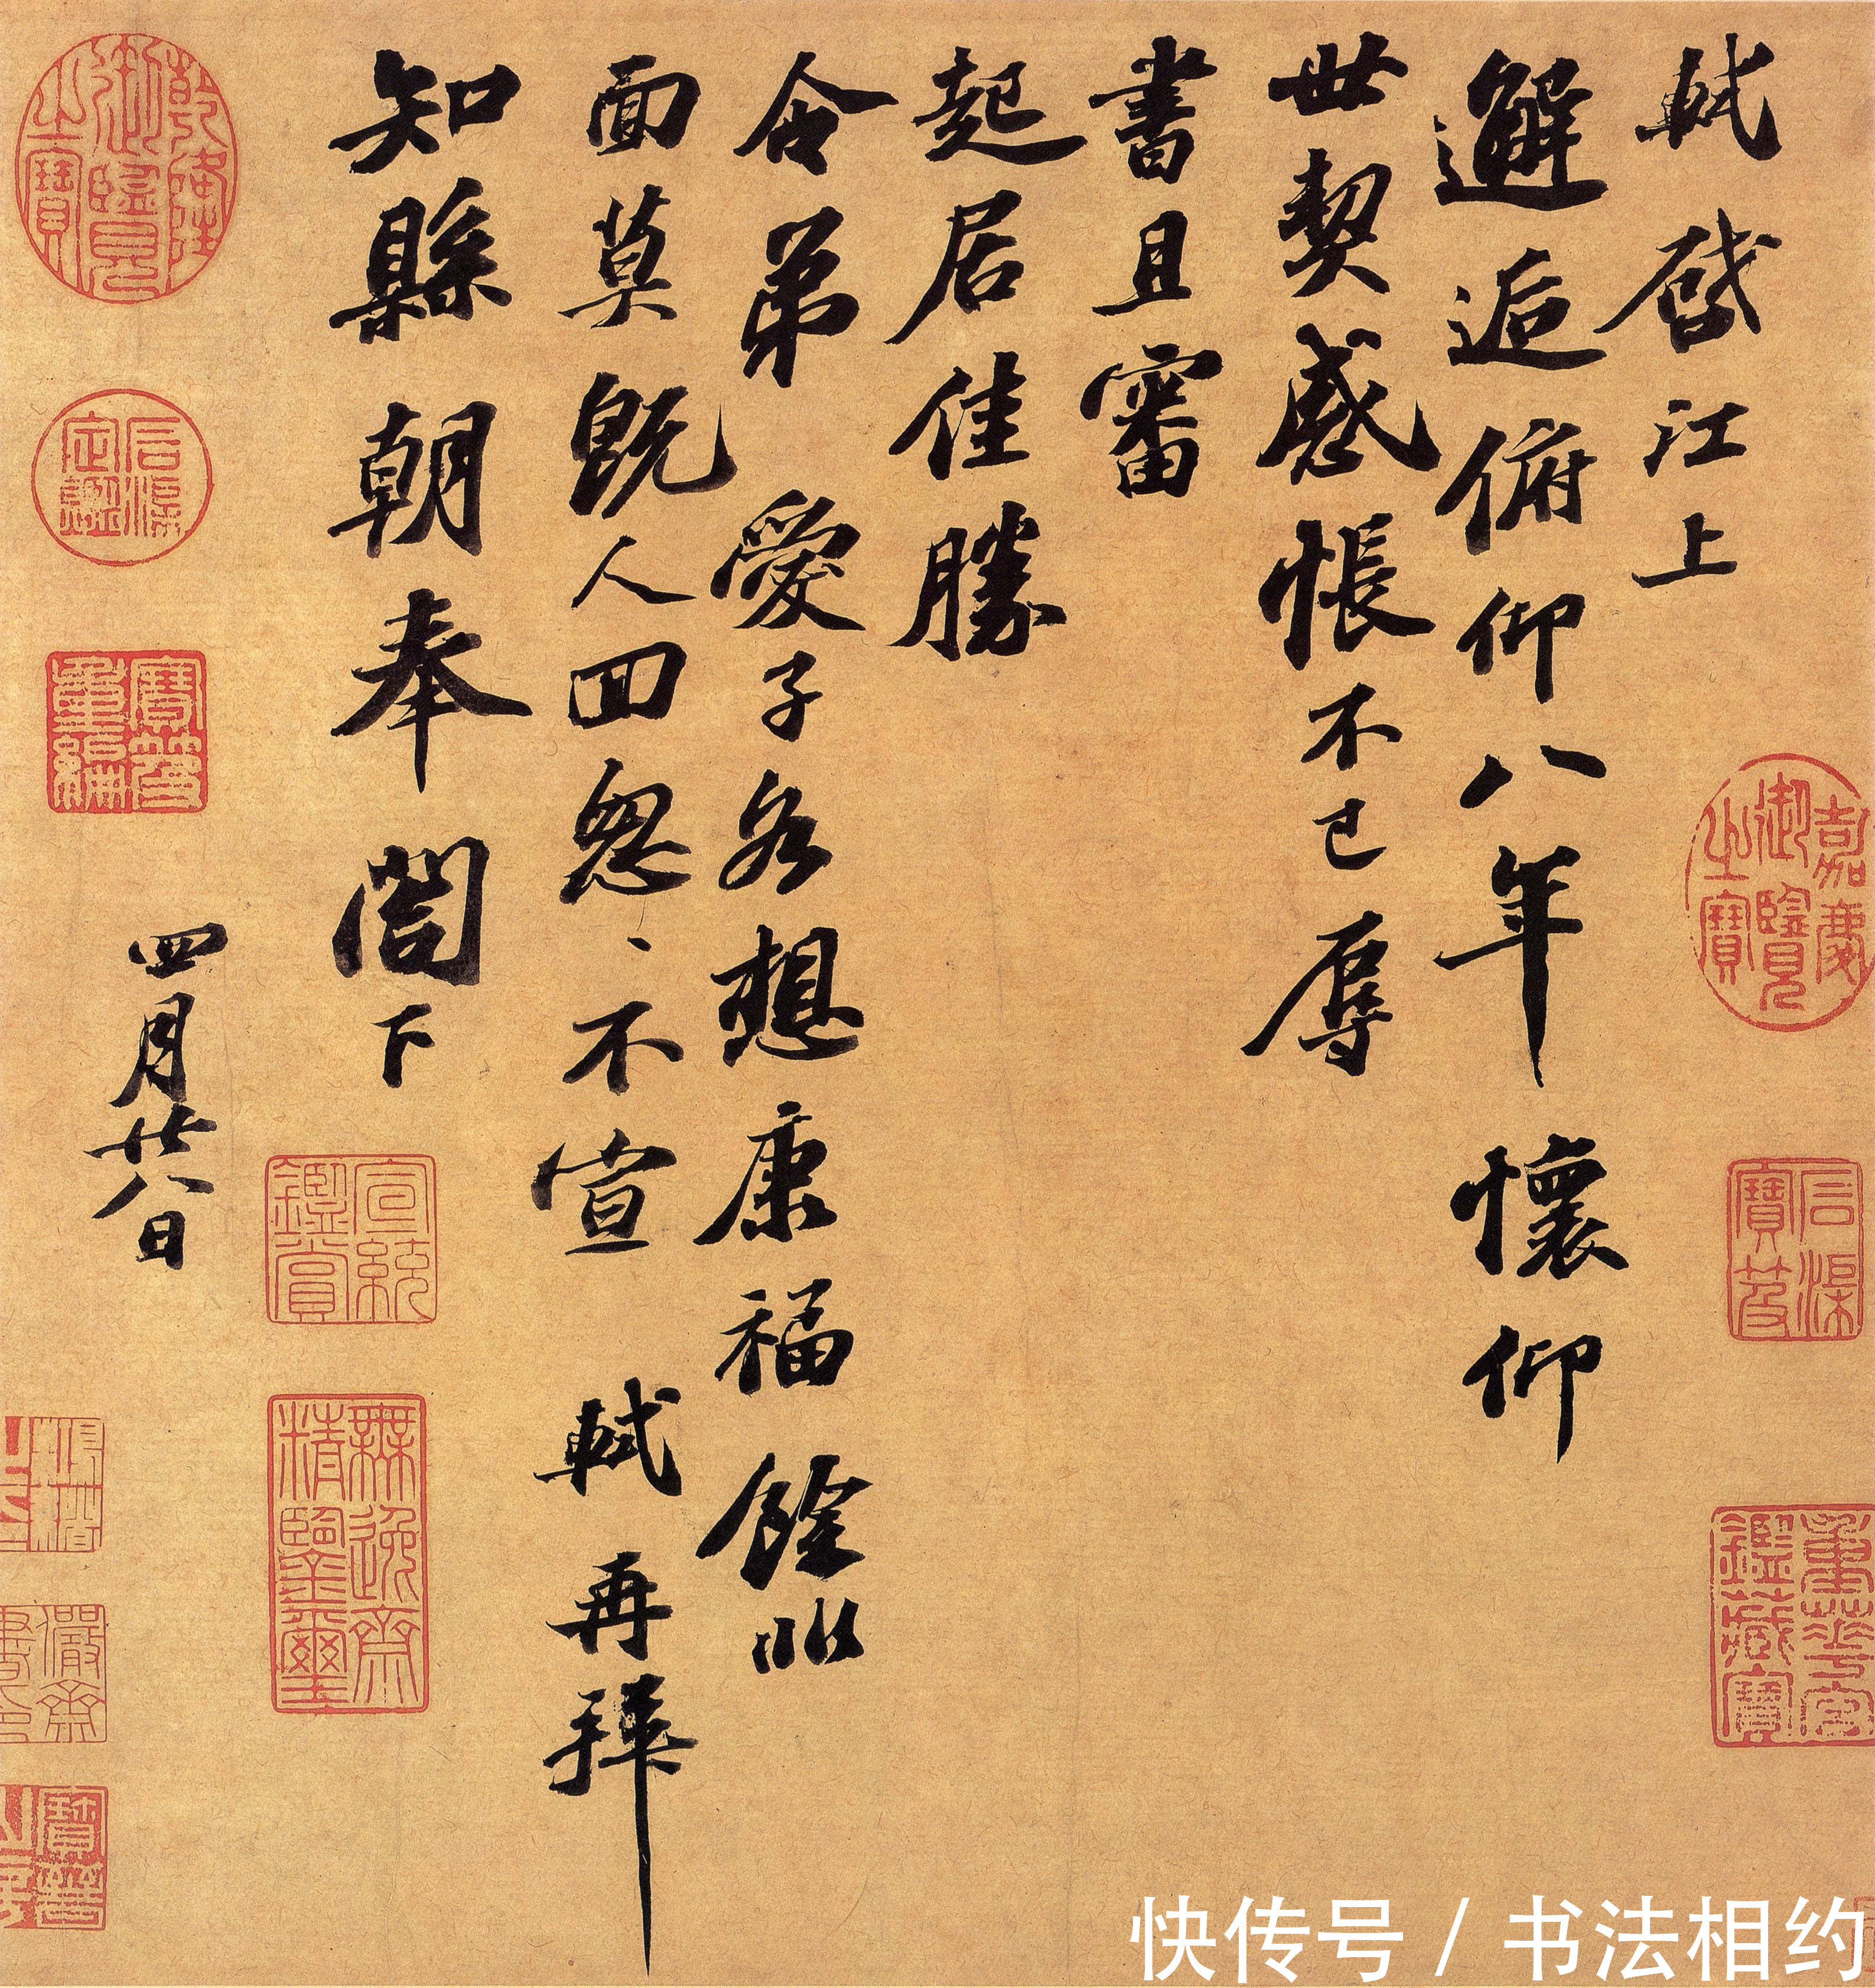 軾啓江上
邂逅俯仰八年懷仰
世契感悵不已辱
書且審
起居佳勝
令弟愛子各想康福餘非
面莫既人回怱〻不宣軾再拜
知縣朝奉閤下
四月廿八日
乾隆御覽之寶
石渠定鑑
寶笈重編
宣統鑑賞
無逸齋精鑒璽
嘉慶御覽之寶
石渠寶笈
重華宮鑑藏寶
快传号 / 书法相约